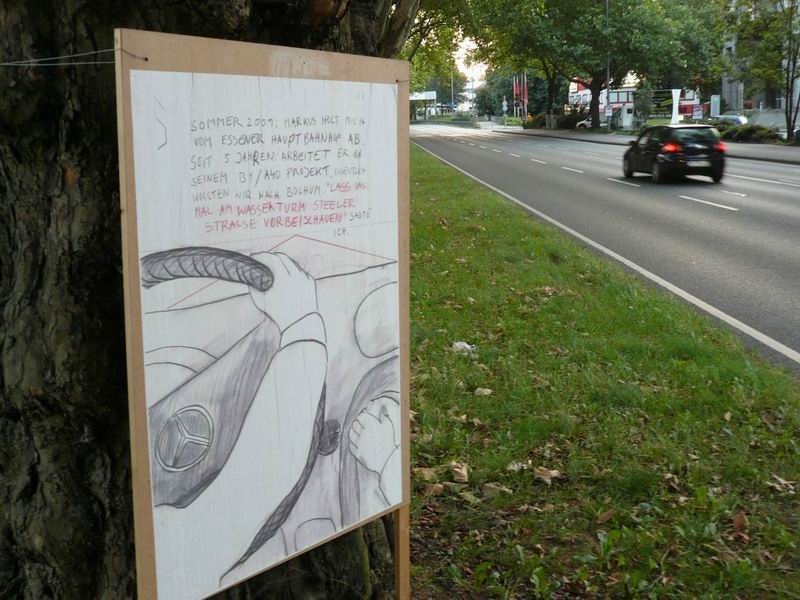 SOMMER 2009: MARKUS HOLT MICH
VOM ESSENER HAUPTBAHNHOF AB.
SEIT 5 JAHREN ARBEITET ER AN
SEINEM B1/A40 PROJEKT. EIGENTLICH
WOLLTEN WIR NACH BOCHUM. "LASS DAS
MAL AM WASSERTURM STEELER
STRASSE VORBEISCHAUEN" SAGTE
ICH.